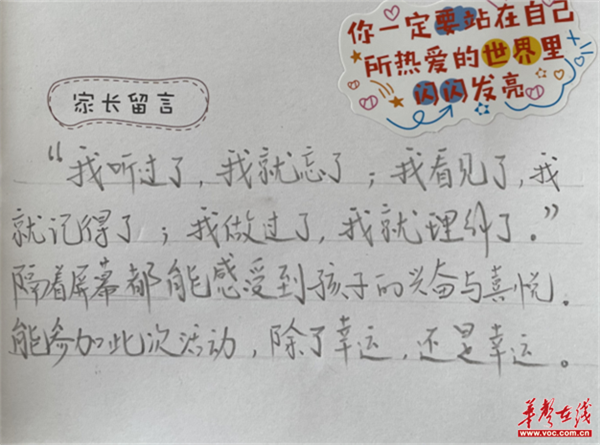 你一定要站在自己
所热爱的世界里
闪闪发亮
家长留言
“我听过了，我就忘了；我看见了，我
就记得了；我做过了，我就理解了。”
隔着屏幕都能感受到孩子的兴奋与喜悦。
能参加此次活动，除了幸运，还是幸运。
华声在线
www.voc.com.cn